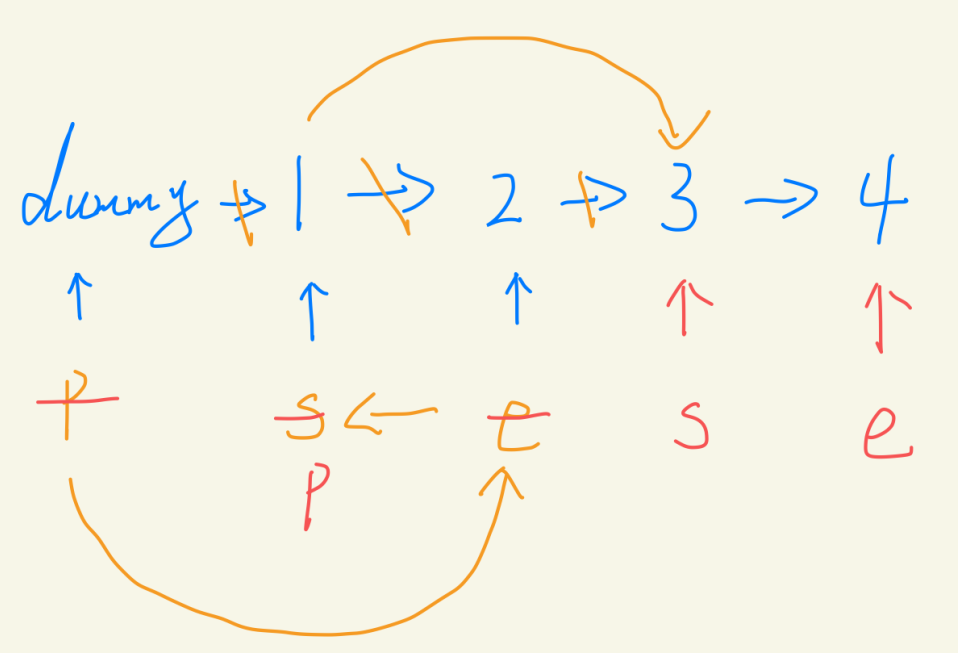 dummy → 1 → 2 → 3 → 4
↑ ↑ ↑ ↑ ↑
P s ← e s e
P